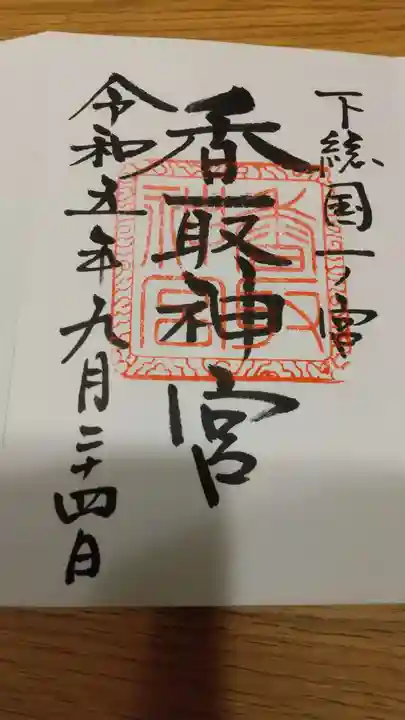 下総国一ノ宮
香取神宮
令和五年九月二十四日
香取神宮